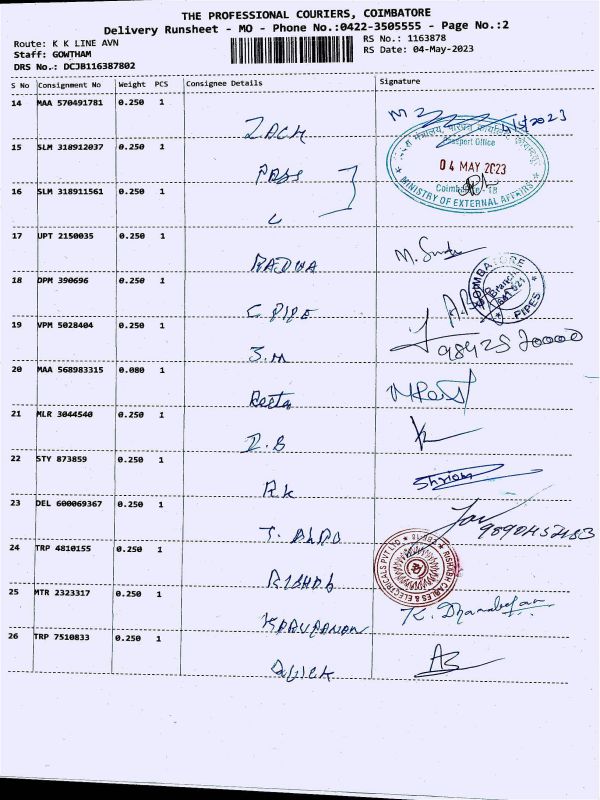 THE PROFESSIONAL COURIERS, COIMBATORE
Delivery Runsheet - MO - Phone No.:0422-3505555 - Page No.:2
Route: K K LINE AVN
RS No.: 1163878
Staff: GOWTHAM
RS Date: 04-May-2023
DRS No.: DCJB116387802
S No Consignment No Weight PCS Consignee Details Signature
14 MAA 570491781 0.250 1
ZACK
4/5/2023
15 SLM 318912037 0.250 1
PASS
Passport Office
04 MAY 2023
Coimbatore - 18
MINISTRY OF EXTERNAL AFFAIRS
16 SLM 318911561 0.250 1
17 UPT 2150035 0.250 1
RADHA
18 DPM 390696 0.250 1
C PIPE
COIMBATORE
Branch
641 021
PIPES
19 VPM 5028404 0.250 1
S.M
20 MAA 568983315 0.080 1
Reeta
21 MLR 3044540 0.250 1
Z.B
22 STY 873859 0.250 1
RK
23 DEL 600069367 0.250 1
24 TRP 4810155 0.250 1
RISHAB
RISHABH CABLES & ELECTRICALS PVT LTD
25 MTR 2323317 0.250 1
26 TRP 7510833 0.250 1
QUICK